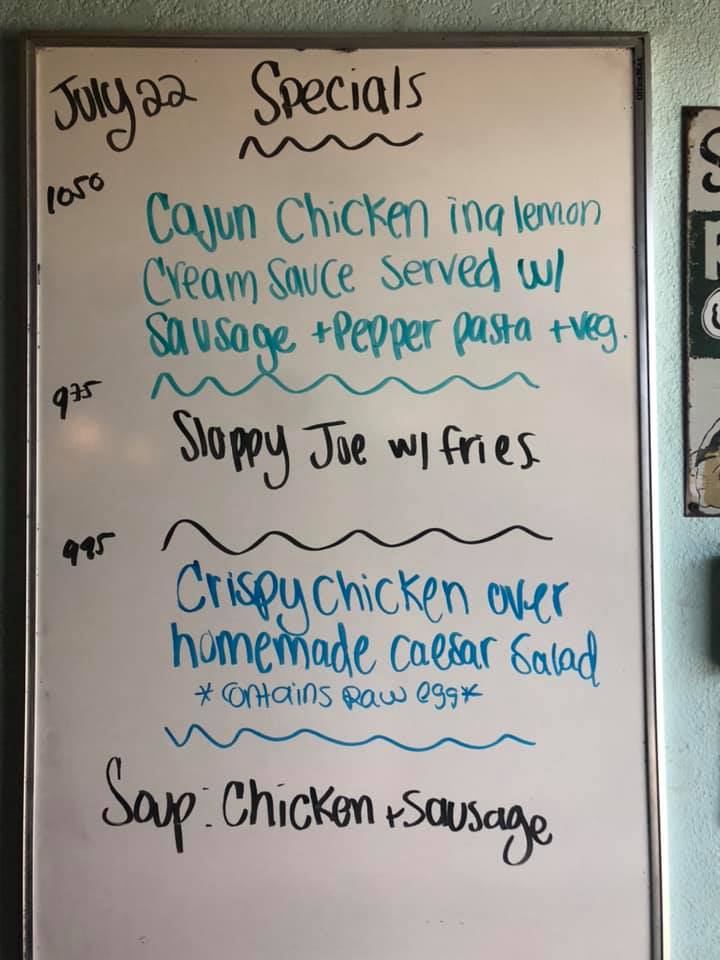 July 22 Specials
1050
Cajun Chicken in a lemon
Cream Sauce served w/
Sausage + Pepper pasta + veg.
975
Sloppy Joe w/ fries
995
Crispy chicken over
homemade caesar Salad
* contains Raw egg *
Soup: Chicken + Sausage